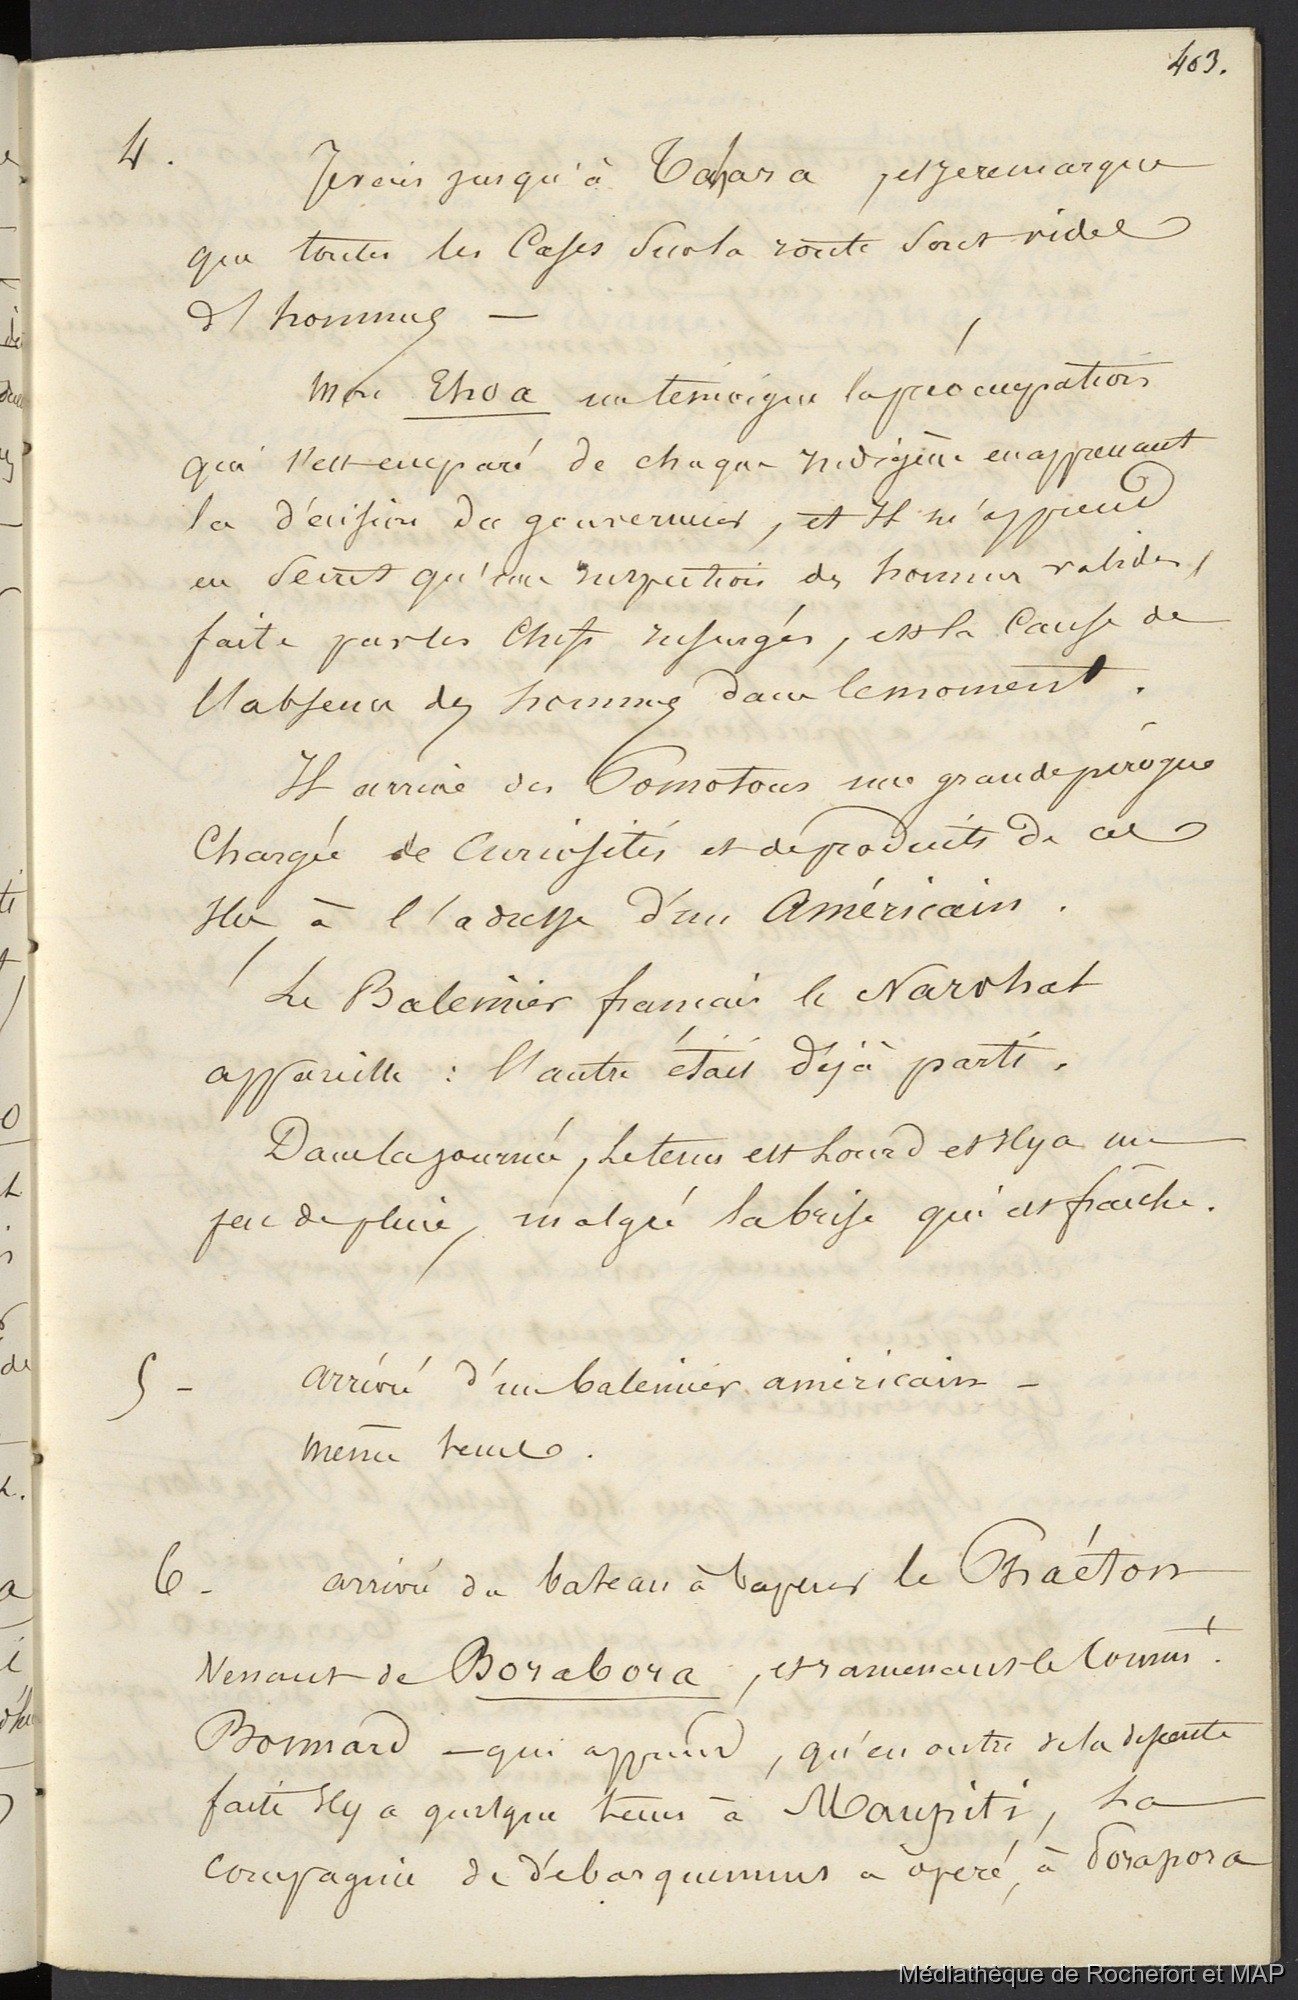 403.
4. Je vais jusqu'à Tahara, et je remarque
que toutes les cases sur la route sont vides
d'hommes —
Mon Ehoa me témoigne la préocupation
qui s'est emparé de chaque indigène en apprenant
la décision du gouverneur, et il m'apprend
en secret qu'une inspection des hommes valides,
faite par les chefs insurgés, est la cause de
l'absence des hommes dans le moment.
Il arrive des Pomotous une grande pirogue
chargée de curiosités et de produits de ces
îles à l'adresse d'un Américain.
Le Baleinier français le Narohat
appareille : l'autre était déjà parti.
Dans la journée, le tems est lourd et il y a un
peu de pluie, malgré la brise qui est fraîche.
5 - arrivée d'un baleinier américain -
même tems.
6 - arrivée du bateau à vapeur le Phaéton
venant de Borabora, et ramenant le Commt.
Bonnard — qui apprend, qu'en outre de la descente
faite il y a quelque tems à Maupiti, la
compagnie de débarquement a opéré, à Borapora
Médiathèque de Rochefort et MAP